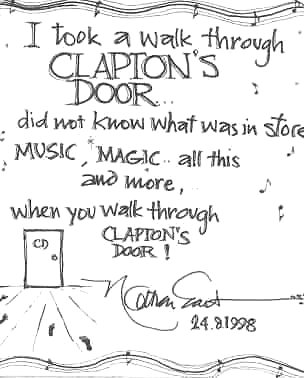 I took a walk through
CLAPTON'S
DOOR...
did not know what was in store
MUSIC, MAGIC.. all this
and more,
when you walk through
CLAPTON'S
DOOR!
CD
Nathan East
24.8.1998